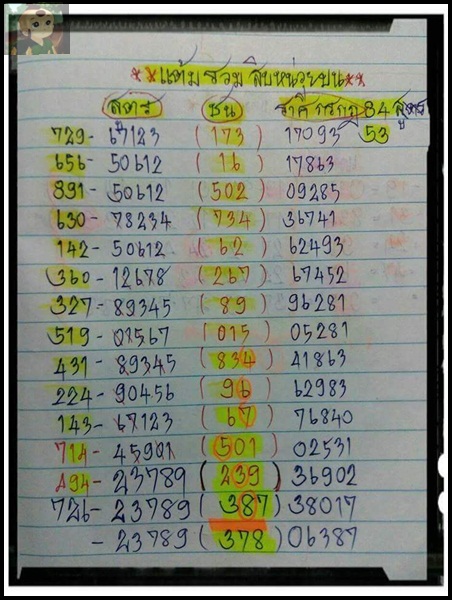 **แต้มรวม สิบหน่วยบน**
สูตร ชน ราศี กรกฎ 34 สูตร
729 - 67123 (173) 17093 53
656 - 50612 (16) 17863
891 - 50612 (502) 09285
630 - 78234 (734) 36741
142 - 50612 (62) 62493
360 - 12678 (267) 67452
327 - 89345 (89) 96281
519 - 01567 (015) 05281
431 - 89345 (834) 41863
224 - 90456 (96) 62983
143 - 67123 (67) 76840
714 - 45901 (501) 02531
494 - 23789 (239) 36902
726 - 23789 (387) 38017
- 23789 (378) 06387